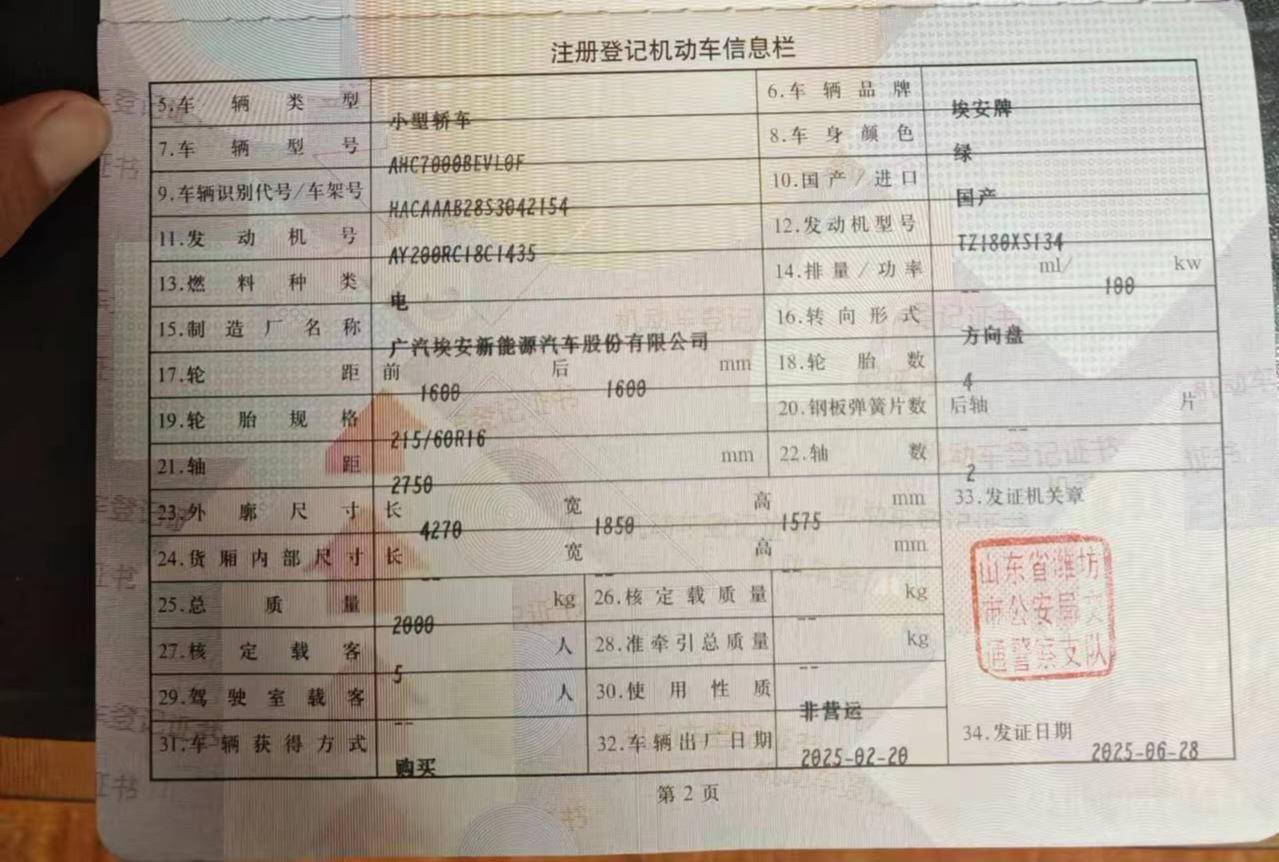 注册登记机动车信息栏
5.车辆类型 小型轿车 6.车辆品牌 埃安牌
7.车辆型号 AHC7000BEVL0F 8.车身颜色 绿
9.车辆识别代号/车架号 HACAAAB28S3042154 10.国产/进口 国产
11.发动机号 AY200RC18C1435 12.发动机型号 TZ180XS134
13.燃料种类 电 14.排量/功率 -- ml/ 100 kw
15.制造厂名称 广汽埃安新能源汽车股份有限公司 16.转向形式 方向盘
17.轮距 前 1600 后 1600 mm 18.轮胎数 4
19.轮胎规格 215/60R16 20.钢板弹簧片数 后轴 -- 片
21.轴距 2750 mm 22.轴数 2
23.外廓尺寸 长 4270 宽 1850 高 1575 mm 33.发证机关章
24.货厢内部尺寸 长 -- 宽 -- 高 -- mm
山东省潍坊
市公安局交
通警察支队
25.总质量 2000 kg 26.核定载质量 -- kg
27.核定载客 5 人 28.准牵引总质量 -- kg
29.驾驶室载客 -- 人 30.使用性质 非营运
31.车辆获得方式 购买 32.车辆出厂日期 2025-02-20 34.发证日期 2025-06-28
第 2 页